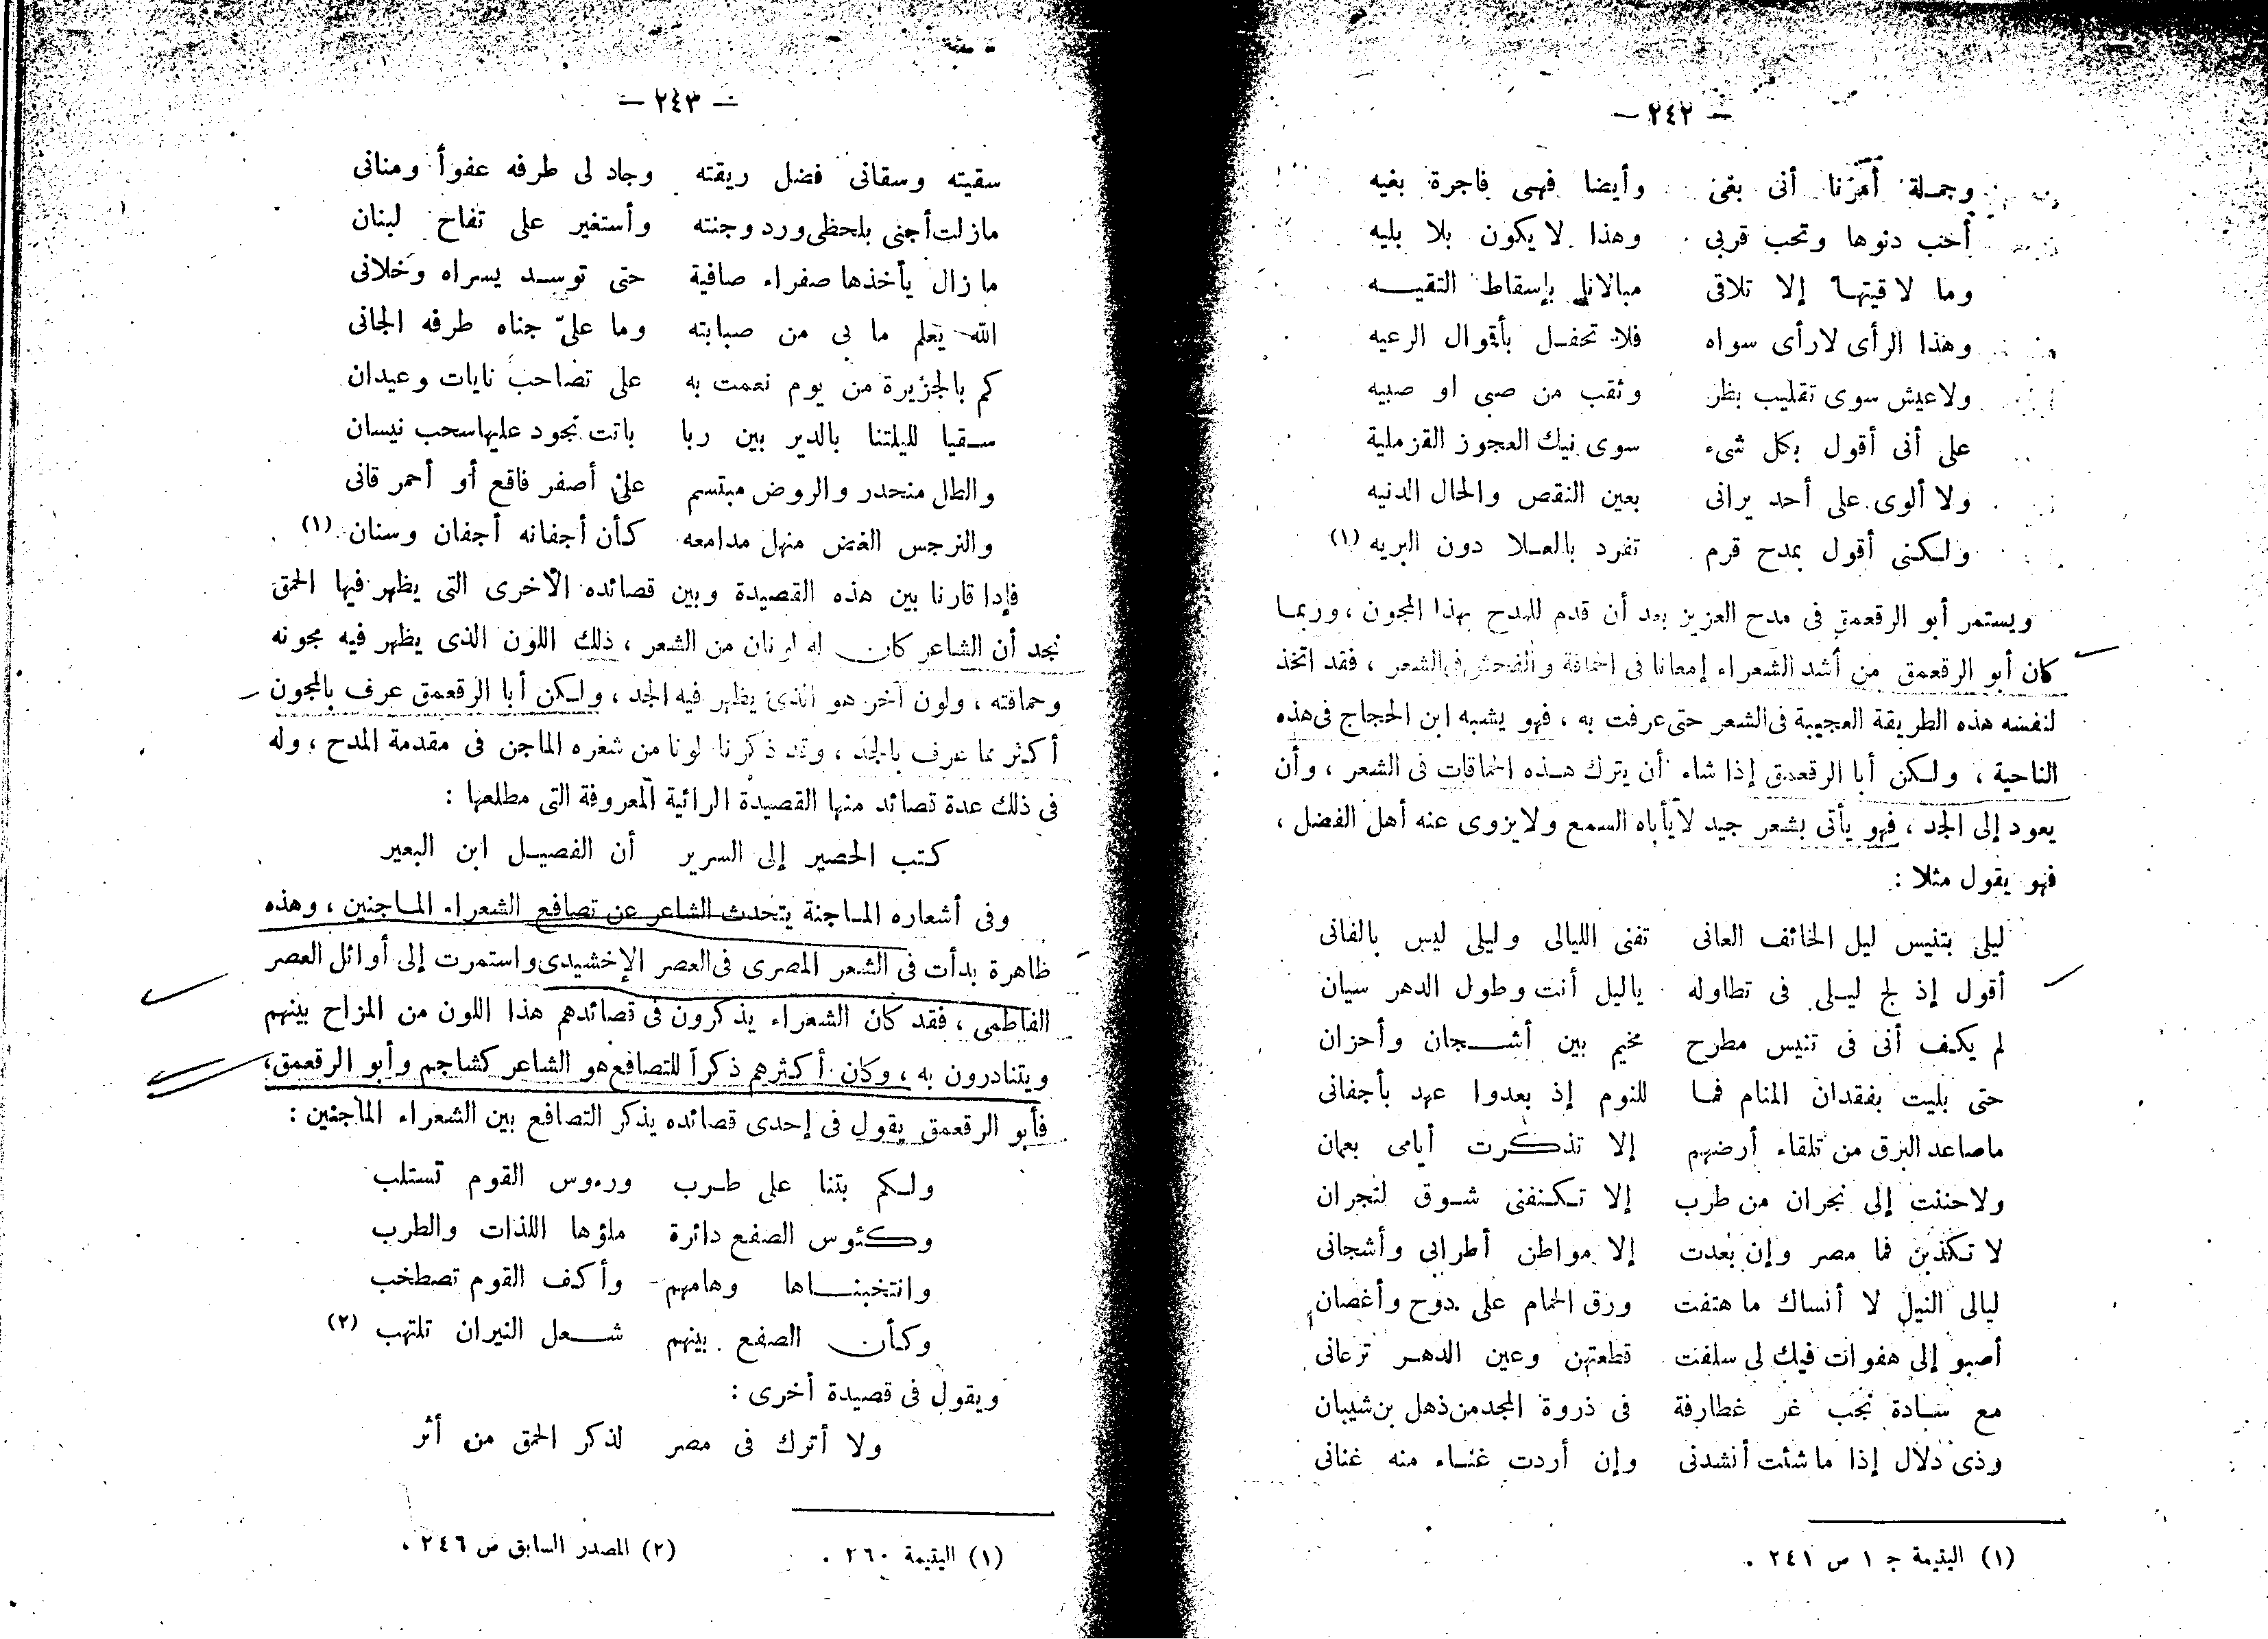 — ٢٤٢ —
وجملة أمرنا أنى بغى وأيضا فهى فاجرة بغيه
أحب دنوها وتحب قربى وهذا لا يكون بلا بليه
وما لاقيتها إلا تلاقى مبالاتى بإسقاط التقيه
وهذا الرأى لا رأى سواه فلا تحفل بأقوال الرعيه
ولا عيش سوى تقليب بظر وثقب من صبى او صبيه
على أنى أقول بكل شىء سوى نيك العجوز القزملية
ولا ألوى على أحد يرانى بعين النقص والحال الدنيه
ولكنى أقول بمدح قرم تفرد بالعلا دون البريه (١)
ويستمر أبو الرقعمق فى مدح العزيز بعد أن قدم للمدح بهذا المجون ، وربما
كان أبو الرقعمق من أشد الشعراء إمعانا فى الحماقة والفحش فى الشعر ، فقد اتخذ
لنفسه هذه الطريقة العجيبة فى الشعر حتى عرفت به ، فهو يشبه ابن الحجاج فى هذه
الناحية ، ولكن أبا الرقعمق إذا شاء أن يترك هذه الحماقات فى الشعر ، وأن
يعود إلى الجد ، فهو يأتى بشعر جيد لا يأباه السمع ولا يزوى عنه أهل الفضل ،
فهو يقول مثلا :
ليلى بتنيس ليل الخائف العانى تفنى الليالى وليلى ليس بالفانى
أقول إذ لج ليلى فى تطاوله ياليل أنت وطول الدهر سيان
لم يكف أنى فى تنيس مطرح مخيم بين أشجان وأحزان
حتى بليت بفقدان المنام فما للنوم إذ بعدوا عهد بأجفانى
ماصاعد البرق من تلقاء أرضهم إلا تذكرت أيامى بعمان
ولاحننت إلى نجران من طرب إلا تكنفنى شوق لنجران
لا تكذبن فما مصر وإن بعدت إلا مواطن أطرابى وأشجانى
ليالى النيل لا أنساك ما هتفت ورق الحمام على دوح وأغصان
أصبو إلى هفوات فيك لى سلفت قطعتهن وعين الدهر ترعانى
مع سادة نجب غر غطارفة فى ذروة المجد من ذهل بن شيبان
وذى دلال إذا ما شئت أنشدنى وإن أردت غناء منه غنانى
(١) اليتيمة ج ١ ص ٢٤١ .
— ٢٤٣ —
سقيته وسقانى فضل ريقته وجاد لى طرفه عفوأ ومنانى
مازلت أجنى بلحظى ورد وجنته وأستغير على تفاح لبنان
ما زال يأخذها صفراء صافية حتى توسد يسراه وخلانى
الله يعلم ما بى من صبابته وما علىّ جناه طرفه الجانى
كم بالجزيرة من يوم نعمت به على تصاحب نايات وعيدان
سقيا لليلتنا بالدير بين ربا باتت تجود عليها سحب نيسان
والطل منحدر والروض مبتسم عن أصفر فاقع أو أحمر قانى
والنرجس الغض منهل مدامعه كأن أجفانه أجفان وسنان (١)
فإدا قارنا بين هذه القصيدة وبين قصائده الأخرى التى يظهر فيها الحمق
نجد أن الشاعر كان له لونان من الشعر ، ذلك اللون الذى يظهر فيه مجونه
وحماقته ، ولون آخر هو الذى يظهر فيه الجد ، ولكن أبا الرقعمق عرف بالمجون
أكثر مما عرف بالجد ، وقد ذكرنا لونا من شعره الماجن فى مقدمة المدح ، وله
فى ذلك عدة قصائد منها القصيدة الرائية المعروفة التى مطلعها :
كتب الحصير إلى السرير أن الفصيل ابن البعير
وفى أشعاره الماجنة يتحدث الشاعر عن تصافع الشعراء الماجنين ، وهذه
ظاهرة بدأت فى الشعر المصرى فى العصر الإخشيدى واستمرت إلى أوائل العصر
الفاطمى ، فقد كان الشعراء يذكرون فى قصائدهم هذا اللون من المزاح بينهم
ويتنادرون به ، وكان أكثرهم ذكرأ للتصافع هو الشاعر كشاجم وأبو الرقعمق ،
فأبو الرقعمق يقول فى إحدى قصائده يذكر التصافع بين الشعراء الماجنين :
ولكم بتنا على طرب ورءوس القوم تستلب
وكئوس الصفع دائرة ملؤها اللذات والطرب
وانتخبناها وهامهم وأكف القوم تصطخب
وكأن الصفع بينهم شعل النيران تلتهب (٢)
ويقول فى قصيدة أخرى :
ولا أترك فى مصر لذكر الحمق من أثر
(١) اليتيمة ٢٦٠ .
(٢) المصدر السابق ص ٢٤٦ .